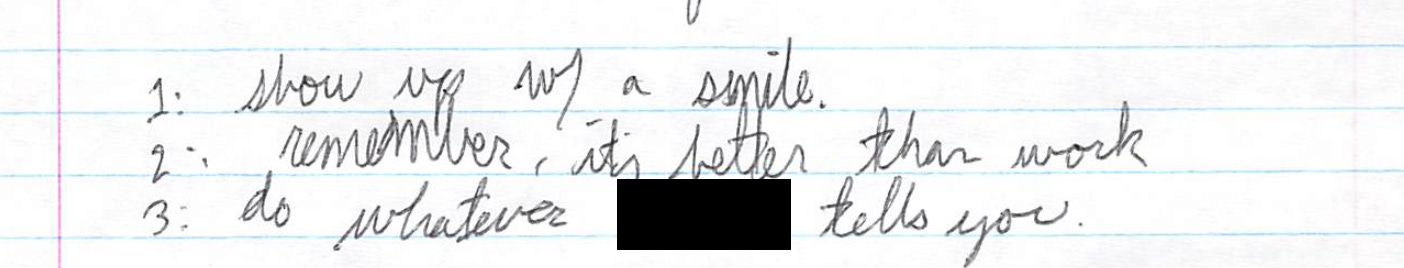 1: show up w/ a smile.
2: remember, it's better than work
3: do whatever tells you.